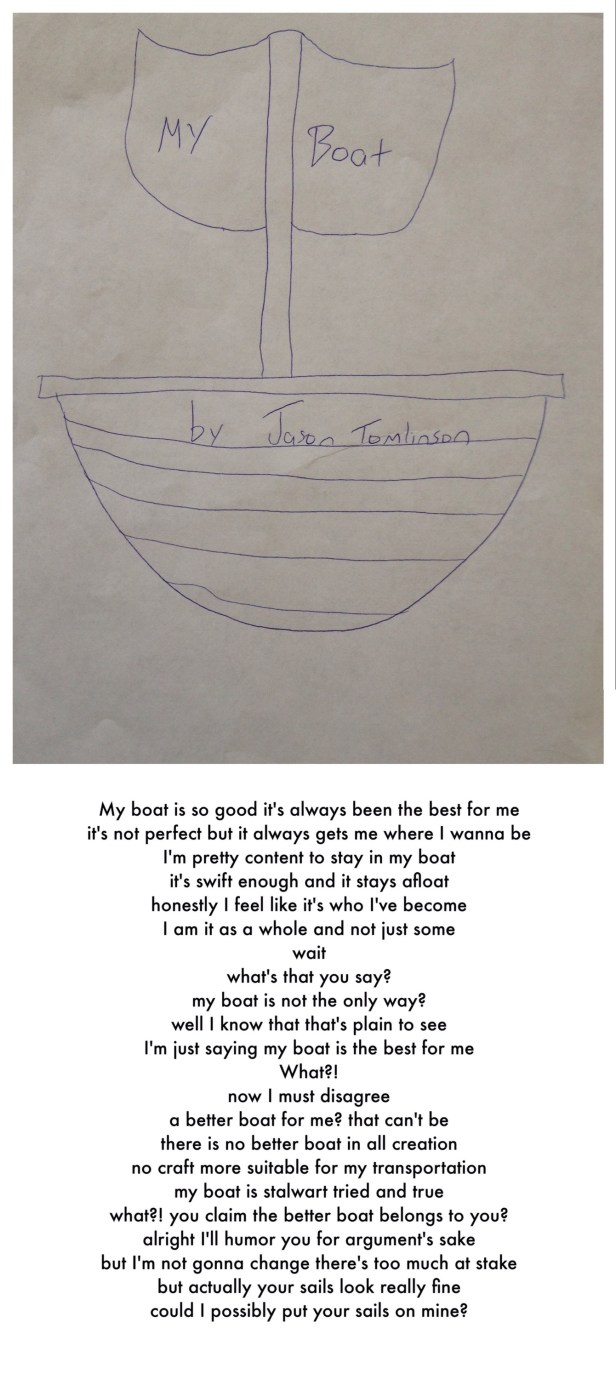 My Boat
by Jason Tomlinson
My boat is so good it's always been the best for me
it's not perfect but it always gets me where I wanna be
I'm pretty content to stay in my boat
it's swift enough and it stays afloat
honestly I feel like it's who I've become
I am it as a whole and not just some
wait
what's that you say?
my boat is not the only way?
well I know that that's plain to see
I'm just saying my boat is the best for me
What?!
now I must disagree
a better boat for me? that can't be
there is no better boat in all creation
no craft more suitable for my transportation
my boat is stalwart tried and true
what?! you claim the better boat belongs to you?
alright I'll humor you for argument's sake
but I'm not gonna change there's too much at stake
but actually your sails look really fine
could I possibly put your sails on mine?